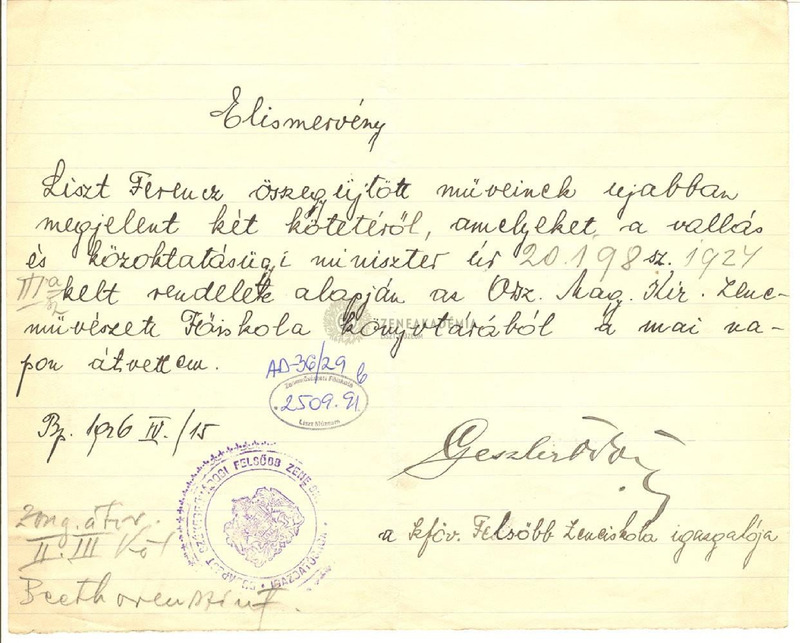 Elismervény
Liszt Ferenc összegyűjtött műveinek ujabban
megjelent két kötetéről, amelyeket a vallás
és közoktatásügyi miniszter úr 20.198 sz. 1924
III a kelt rendelete alapján az Orsz. Mag. Kir. Zene-
művészeti Főiskola könyvtárából a mai na-
pon átvettem.
ZENEAKADÉMIA
AD-36/29 b
Zeneművészeti Főiskola
2509.91
Liszt Múzeum
Bp. 1926 IV./15
Geszler Ödön
a kföv. Felsőbb Zeneiskola igazgatója
BUDAPEST SZÉKESFŐVÁROSI FELSŐBB ZENE
IGAZGATÓSÁGA
Zong. átir.
II. III Köt
Beethoven